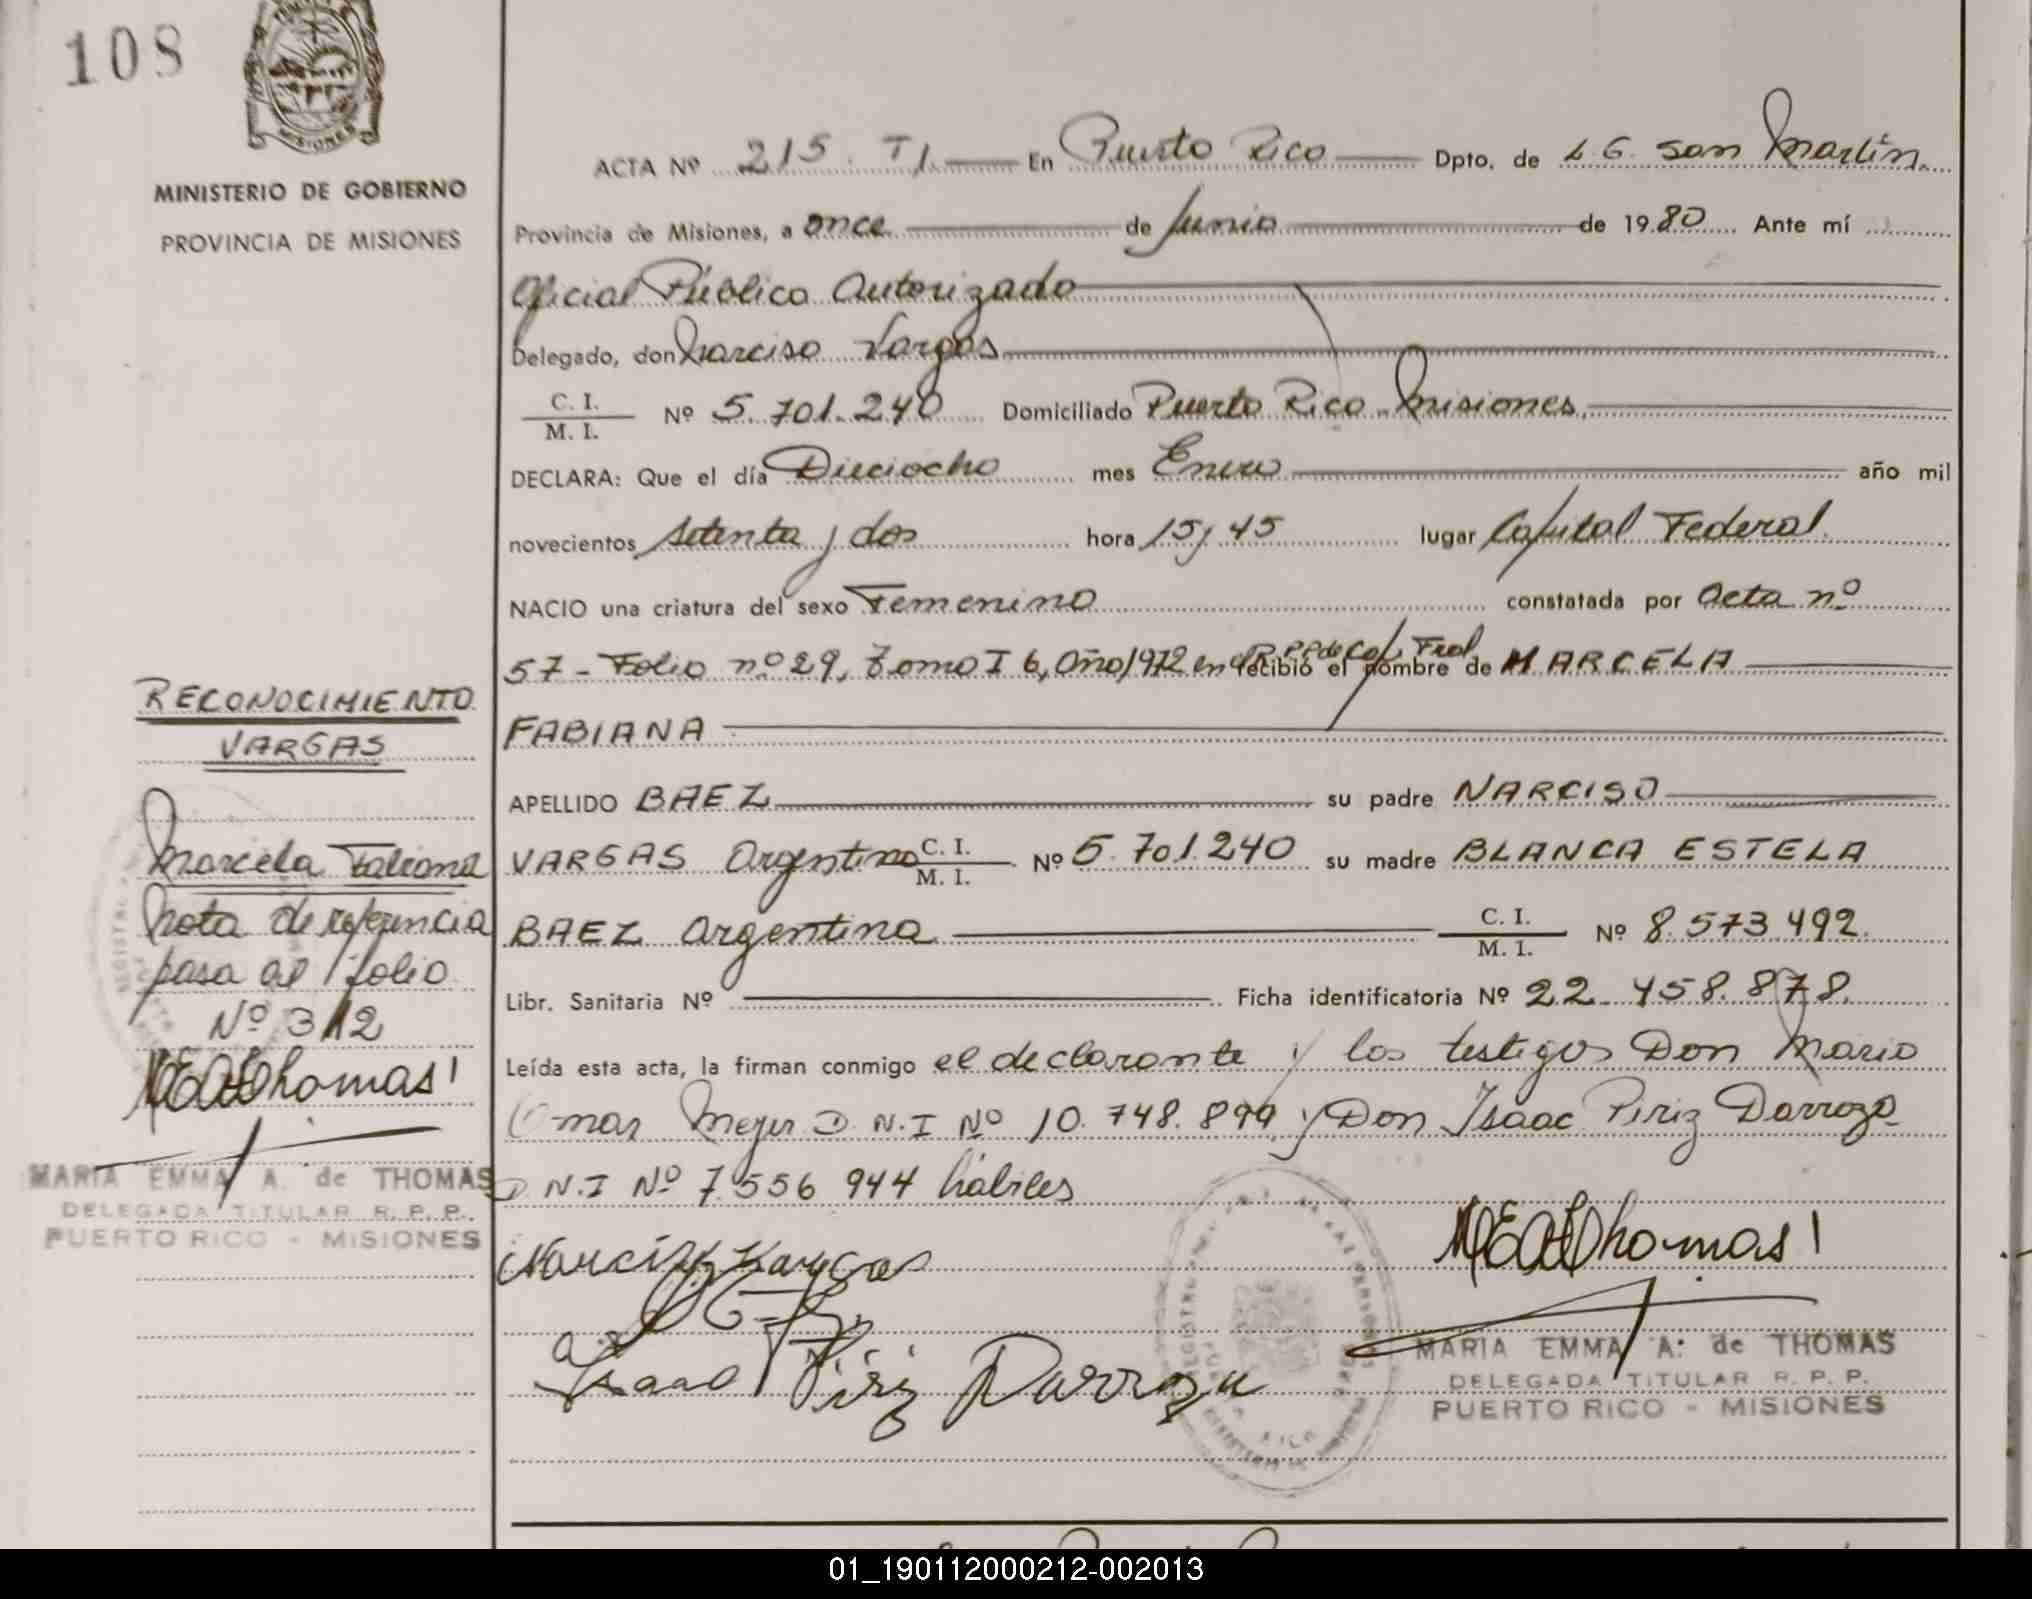 108
MISIONES
MINISTERIO DE GOBIERNO
PROVINCIA DE MISIONES
ACTA Nº 215. T I. En Puerto Rico Dpto. de L G. San Martín.
Provincia de Misiones, a once de Junio de 1980 Ante mí
Oficial Público Autorizado
Delegado, don Narciso Vargas
C. I.
M. I.
Nº 5.701.240 Domiciliado Puerto Rico Misiones.
DECLARA: Que el día Dieciocho mes Enero año mil
novecientos setenta y dos hora 15,45 lugar Capital Federal.
NACIO una criatura del sexo Femenino constatada por acta nº
57 - Folio nº 29, Tomo I 6, Año 1972 en R.P.P de Cap. Fral recibió el nombre de MARCELA
FABIANA
APELLIDO BAEZ su padre NARCISO
VARGAS Argentino C. I. M. I. Nº 5.701.240 su madre BLANCA ESTELA
BAEZ Argentina C. I. M. I. Nº 8.573.492.
Libr. Sanitaria Nº Ficha identificatoria Nº 22.458.878.
Leída esta acta, la firman conmigo el declarante y los testigos Don Mario
Omar Meyer D.N.I Nº 10.748.899 y Don Isaac Piriz Darroza
D N.I Nº 7.556 944 hábiles
Narciso Vargas
Isaac Piriz Darroza
M E A D Thomas
MARIA EMMA A. de THOMAS
DELEGADA TITULAR R. P. P.
PUERTO RICO - MISIONES
RECONOCIMIENTO
VARGAS
Marcela Fabiana
Nota de referencia
pasa al folio
Nº 312
M E A D Thomas
MARIA EMMA A. de THOMAS
DELEGADA TITULAR R. P. P.
PUERTO RICO - MISIONES
01_190112000212-002013